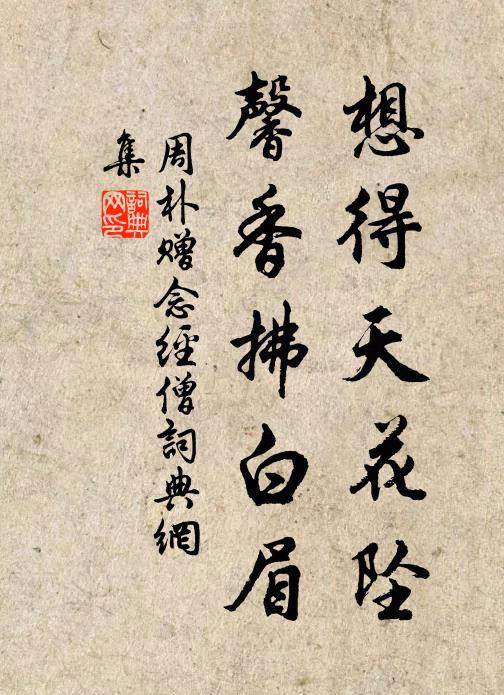 想得天花坠
馨香拂白眉
周朴赠念經僧詞典網
集
詞典
网印